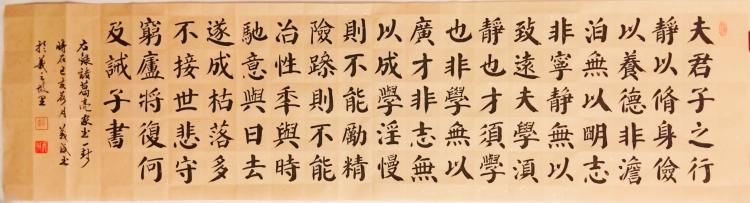 夫君子之行
靜以脩身儉
以養德非澹
泊無以明志
非寧靜無以
致遠夫學湏
靜也才須學
也非學無以
廣才非志無
以成學淫慢
則不能勵精
險躁則不能
冶性秊與時
馳意與日去
遂成枯落多
不接世悲守
窮廬將復何
及誡子書
右錄諸葛亮家書一則
時在己亥月義書
於義之